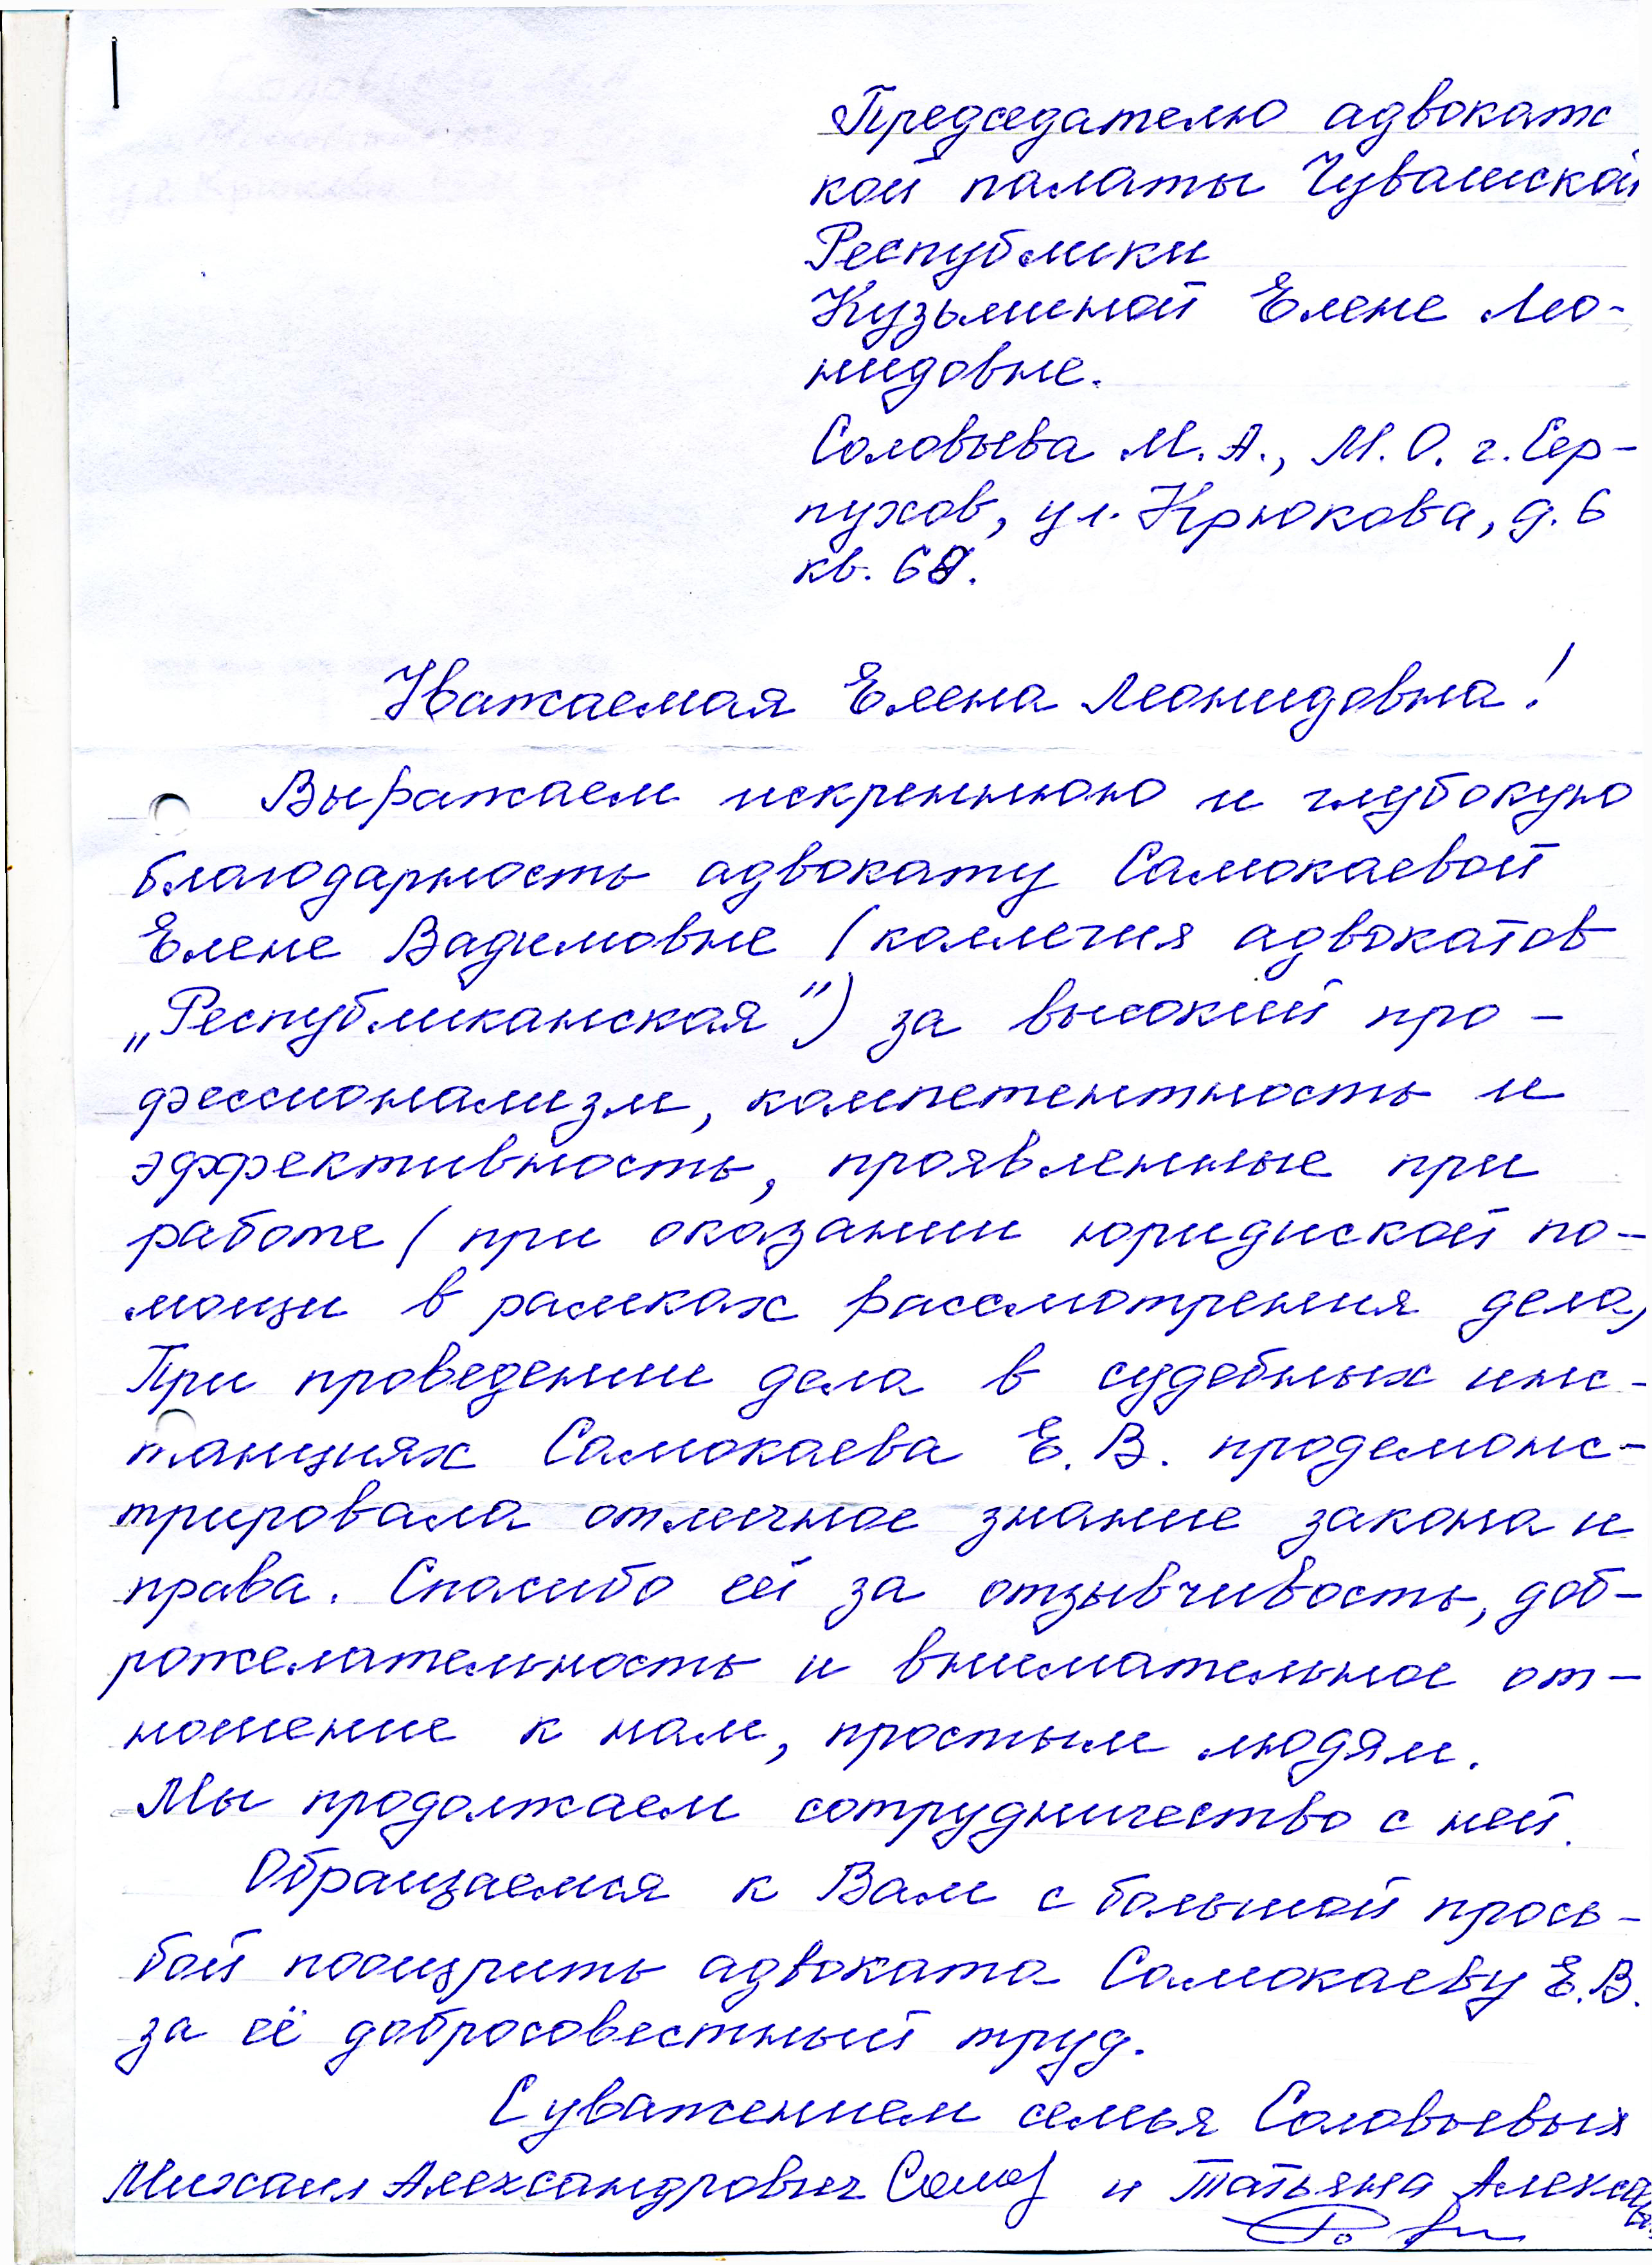 Председателю адвокатс
кой палаты Чувашской
Республики
Кузьминой Елене Лео-
нидовне.
Соловьева М. А., М. О. г. Сер-
пухов, ул. Крюкова, д. 6
кв.
Уважаемая Елена Леонидовна!
Выражаем искреннюю и глубокую
благодарность адвокату Самокаевой
Елене Вадимовне (коллегия адвокатов
„Республиканская”) за высокий про-
фессионализм, компетентность и
эффективность, проявленные при
работе (при оказании юридиской по-
мощи в рамках рассмотрения дела,
При проведении дела в судебных инс-
танциях Самокаева Е. В. продемонс-
трировала отличное знание закона и
права. Спасибо ей за отзывчивость, доб-
рожелательность и внимательное от-
ношение к нам, простым людям.
Мы продолжаем сотрудничество с ней.
Обращаемся к Вам с большой прось-
бой поощрить адвоката Самокаеву Е. В.
за её добросовестный труд.
С уважением семья Соловьевых
Михаил Александрович и Татьяна